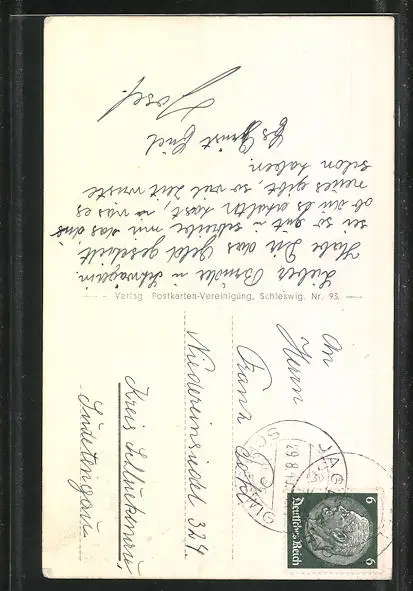 Lieber Bruder u Schwägerin.
Habe Dir das Geld geschickt,
sei so gut u schreibe mir das aus
ob du es erhalten hast, u was es
neues gibt, so viel Zeit wirste
schon haben.
Es Grüst Euch
Josef.
Verlag Postkarten-Vereinigung, Schleswig. Nr. 93.
An
Herrn
Franz
Niedereinsiedel 324.
Kreis Schluckenau,
Sudetengau
6 6
Deutsches Reich
29.8.